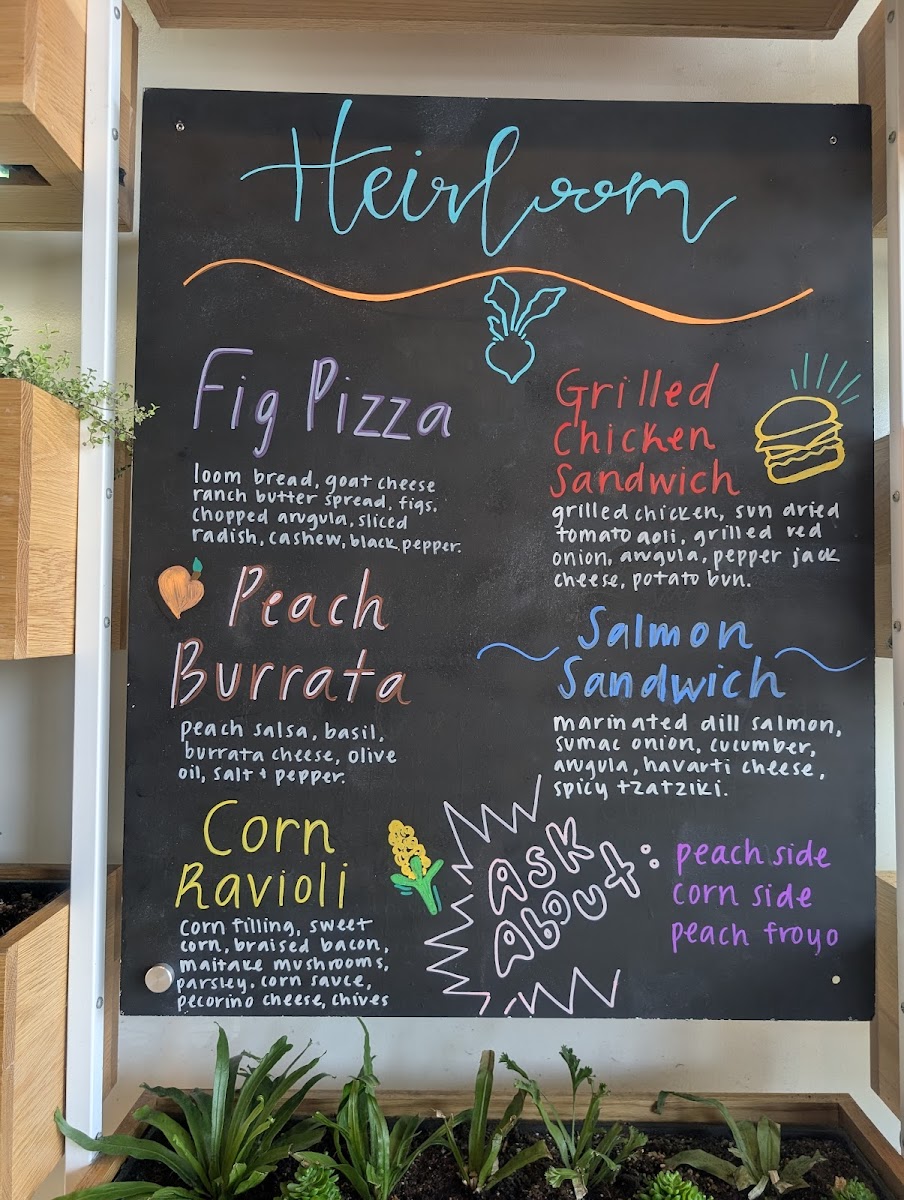 Heirloom
Fig Pizza
loom bread, goat cheese
ranch butter spread, figs.
chopped arugula, sliced
radish, cashew, black pepper.
Peach
Burrata
peach salsa, basil,
burrata cheese, olive
oil, salt + pepper.
Corn
Ravioli
corn filling, sweet
corn, braised bacon,
maitake mushrooms,
parsley, corn sauce,
pecorino cheese, chives
Grilled
Chicken
Sandwich
grilled chicken, sun dried
tomato aoli, grilled red
onion, arugula, pepper jack
cheese, potato bun.
Salmon
Sandwich
marinated dill salmon,
sumac onion, cucumber,
arugula, havarti cheese,
spicy tzatziki.
Ask
About:
peach side
corn side
peach froyo